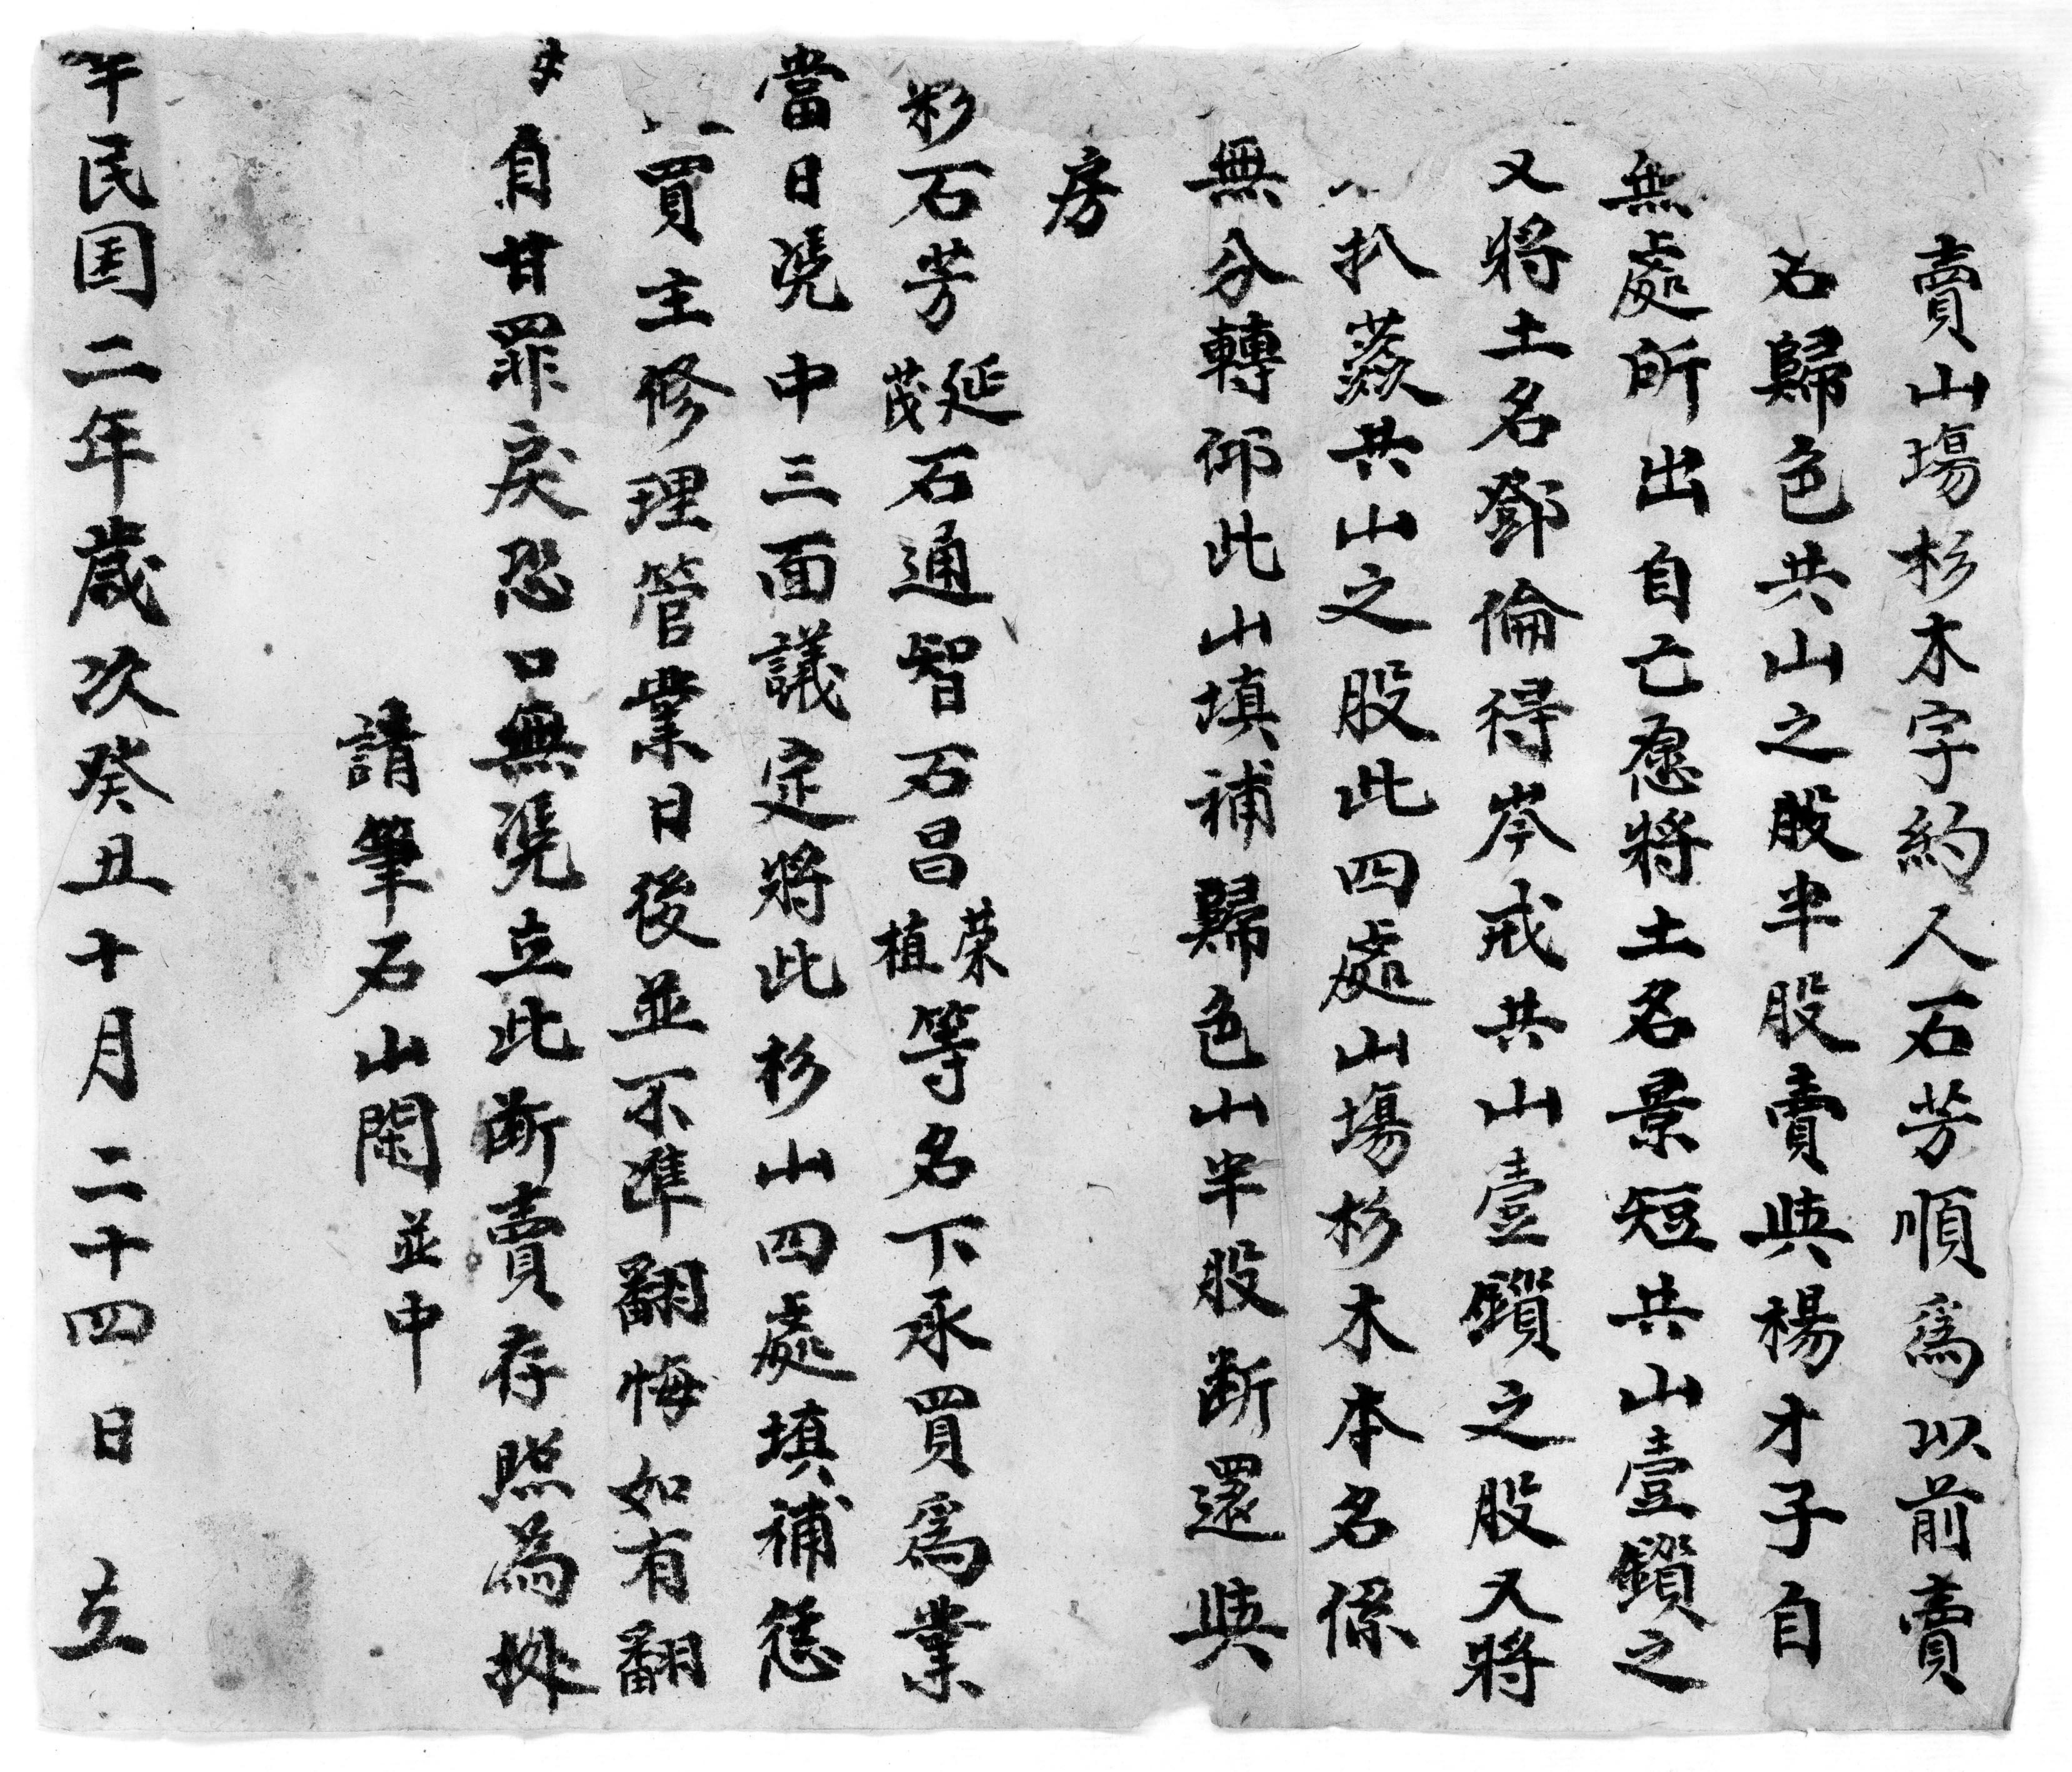 賣山塲杉木字約人石芳順爲以前賣
名歸色共山之股半股賣與楊才子自
無處所出自亡愿將土名景短共山壹鑽之
又將土名鄧倫得岑戒共山壹鑽之股又將
扒蒸共山之股此四處山塲杉木本名係
無分轉仰此山填補歸色山半股断還與
房
彩石芳延茂石通智石昌荣植等名下承買爲業
當日凭中三面議定將此杉山四處填補恁
買主修理管業日後並不準翻悔如有翻
自甘罪戾恐口無凭立此断賣存照為
請筆石山閑並中
午民国二年歲次癸丑十月二十四日立